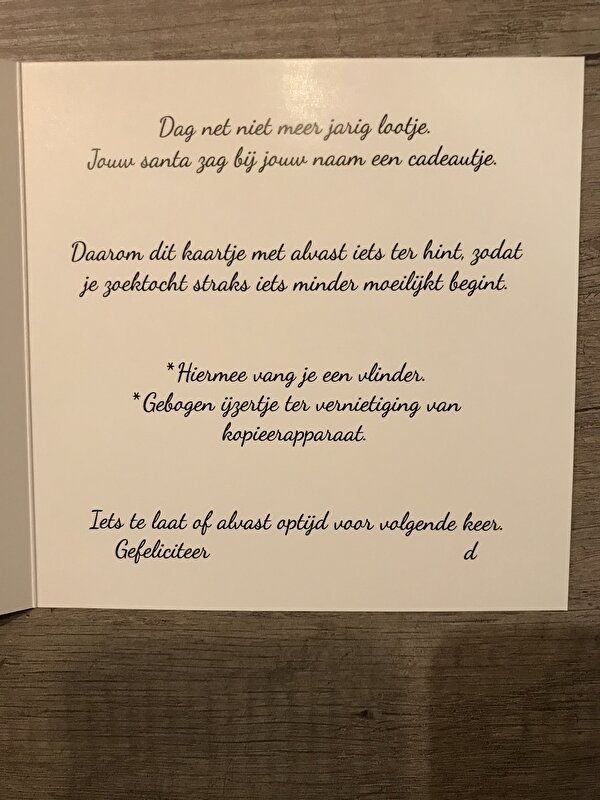 Dag net niet meer jarig lootje.
Jouw santa zag bij jouw naam een cadeautje.
Daarom dit kaartje met alvast iets ter hint, zodat
je zoektocht straks iets minder moeilijkt begint.
*Hiermee vang je een vlinder.
*Gebogen ijzertje ter vernietiging van
kopieerapparaat.
Iets te laat of alvast optijd voor volgende keer.
Gefeliciteer d